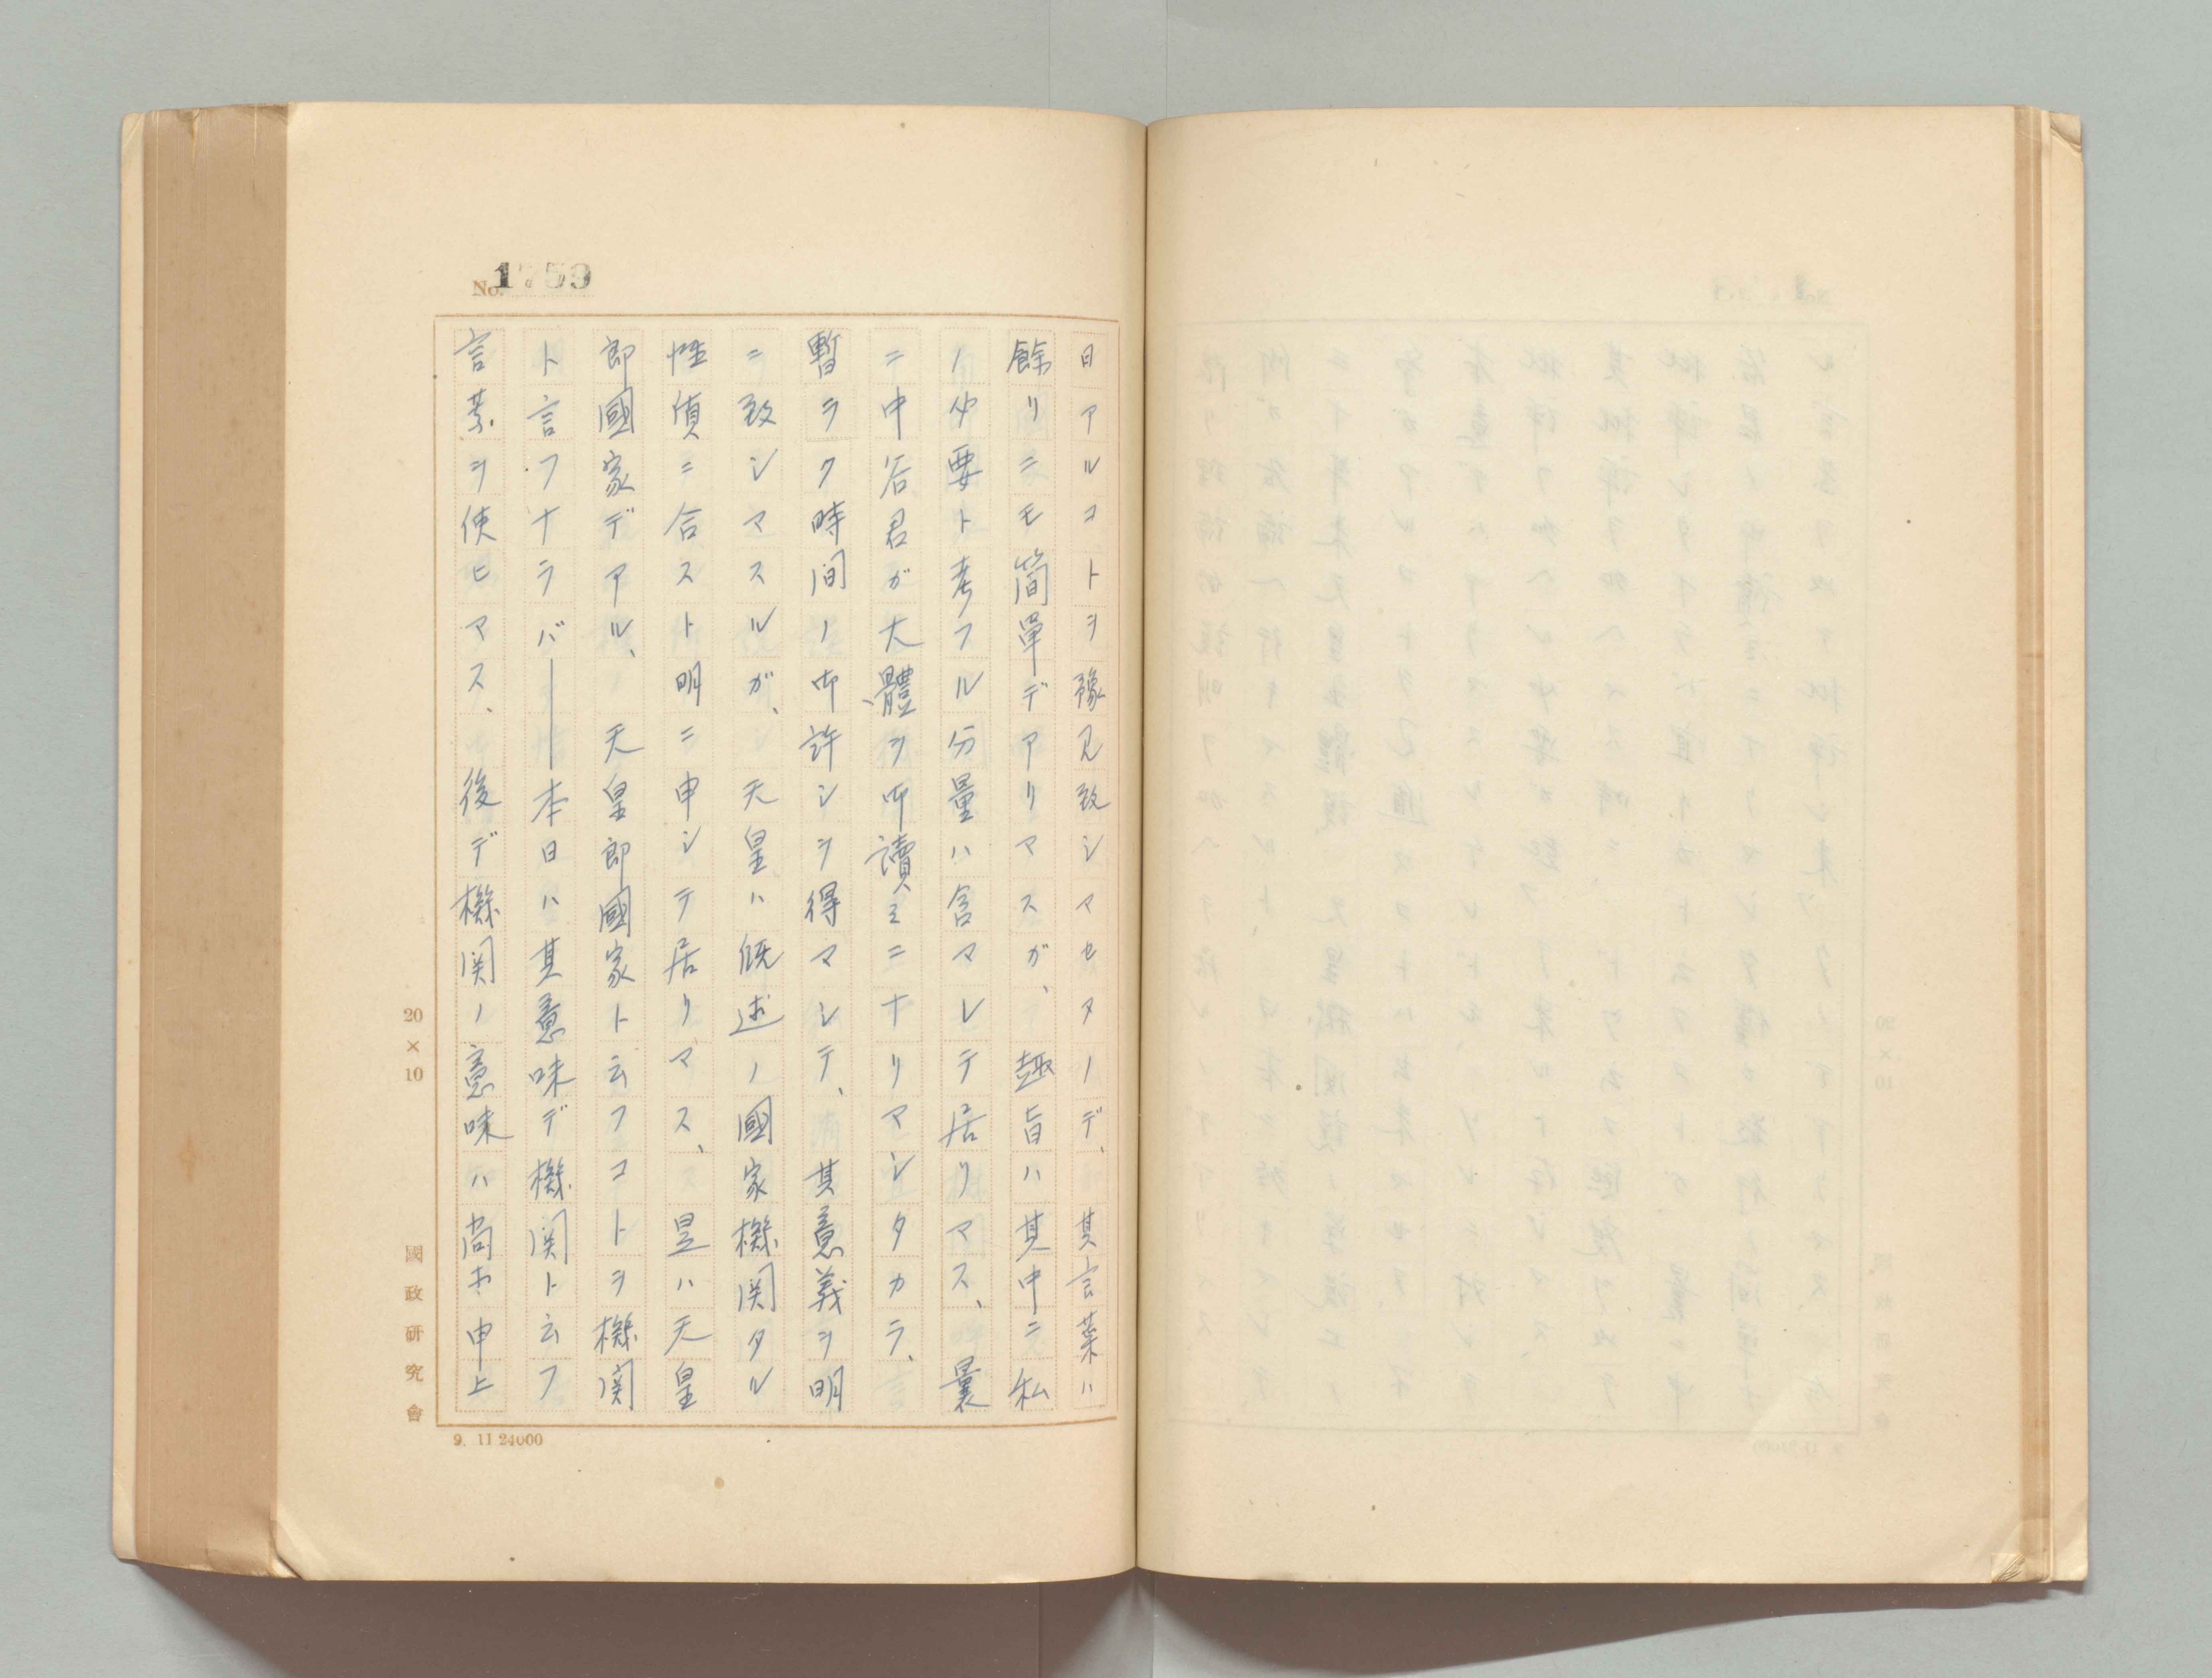 No. 1759
日アルコトヲ豫見致シマセタノデ、其言葉ハ
餘リニモ簡單デアリマスガ、趣旨ハ其中ニ私
ノ必要ト考フル分量ハ含マレテ居リマス、曩
ニ中谷君ガ大體ヲ御讀ミニナリマシタカラ、
暫ラク時間ノ御許シヲ得マシテ、其意義ヲ明
ニ致シマスルガ、天皇ハ既述ノ國家機関タル
性質ニ合スト明ニ申シテ居リマス、是ハ天皇
即國家デアル、天皇即國家ト云フコトヲ機関
ト言フナラバ――本日ハ其意味デ機関ト云フ
言葉ヲ使ヒマス、後デ機関ノ意味ハ尚ホ申上
20×10
國政研究會
9. 11 24000